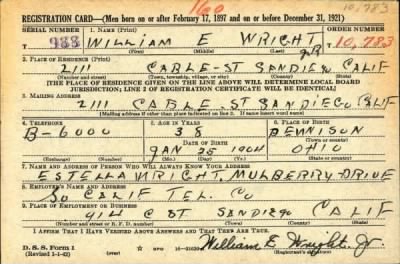 160
10,783
REGISTRATION CARD—(Men born on or after February 17, 1897 and on or before December 31, 1921)
SERIAL NUMBER 1. NAME (Print) ORDER NUMBER
988 WILLIAM E WRIGHT JR 10,783
(First) (Middle) (Last)
2. PLACE OF RESIDENCE (Print)
2111 CABLE-ST SANDIEGO CALIF
(Number and street) (Town, township, village, or city) (County) (State)
[THE PLACE OF RESIDENCE GIVEN ON THE LINE ABOVE WILL DETERMINE LOCAL BOARD
JURISDICTION; LINE 2 OF REGISTRATION CERTIFICATE WILL BE IDENTICAL]
3. MAILING ADDRESS
2111 CABLE-ST SANDIEGO CALIF
[Mailing address if other than place indicated on line 2. If same insert word same]
4. TELEPHONE 5. AGE IN YEARS 6. PLACE OF BIRTH
B-6000 38 DENNISON
DATE OF BIRTH (Town or county)
JAN 25 1904 OHIO
(Mo.) (Day) (Yr.) (State or country)
7. NAME AND ADDRESS OF PERSON WHO WILL ALWAYS KNOW YOUR ADDRESS
ESTELLA WRIGHT, MULBERRY-DRIVE
8. EMPLOYER'S NAME AND ADDRESS
SO CALIF TEL. CO
9. PLACE OF EMPLOYMENT OR BUSINESS
914 C ST SANDIEGO CALIF
(Number and street or R. F. D. number) (Town) (County) (State)
I AFFIRM THAT I HAVE VERIFIED ABOVE ANSWERS AND THAT THEY ARE TRUE.
D. S. S. Form 1 GPO
(Revised 1-1-42) (over) William E. Wright, Jr.
(Registrant's signature)